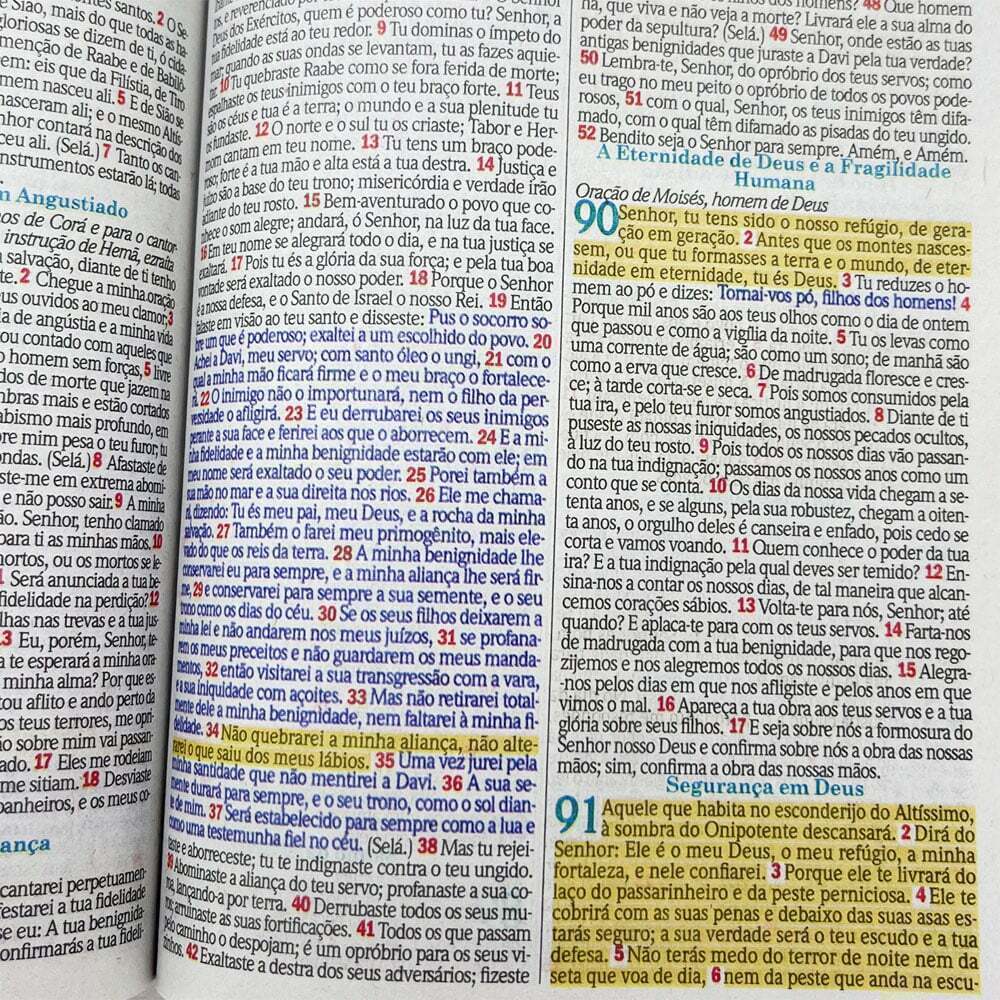 ntes santos. 2 O Se-
e Sião, mais do que todas as ha-
oriosas se dizem de ti, ó cida-
menção de Raabe e de Babilô-
cem: eis que da Filístia, de Tiro
nasceram ali; e o mesmo Altís-
nhor contará na descrição dos
ceu ali. (Selá.) 7 Tanto os can-
instrumentos estarão lá; todas
m Angustiado
hos de Corá e para o cantor-
instrução de Hemã, ezraíta
salvação, diante de ti tenho
te. 2 Chegue a minha oração
eus ouvidos ao meu clamor; 3
ia de angústia e a minha vida
ou contado com aqueles que
homem sem forças, 5 livre
dos de morte que jazem na
mbras mais e estão cortados
abismo mais profundo, em
re mim pesa o teu furor; tu
ondas. (Selá.) 8 Afastaste de
ste-me em extrema abomi-
e não posso sair. 9 A minha
ão. Senhor, tenho clamado
para ti as minhas mãos. 10
mortos, ou os mortos se le-
Será anunciada a tua be-
fidelidade na perdição? 12
lhas nas trevas e a tua jus-
13 Eu, porém, Senhor, te-
a te esperará a minha ora-
minha alma? Por que es-
tou aflito e ando perto da
os teus terrores, me opri-
ão sobre mim vai passan-
ado. 17 Eles me rodeiam
me sitiam. 18 Desviaste
panheiros, e os meus co-
ança
cantarei perpetuamen-
festarei a tua fidelidade
se eu: A tua benignida-
confirmarás a tua fideli-
ns, e reverenciado por
Deus dos Exércitos, quem é poderoso como tu? Senhor, a
tua fidelidade está ao teu redor. 9 Tu dominas o ímpeto do
mar; quando as suas ondas se levantam, tu as fazes aquie-
tar. 10 Tu quebraste Raabe como se fora ferida de morte;
espalhaste os teus inimigos com o teu braço forte. 11 Teus
são os céus e tua é a terra; o mundo e a sua plenitude tu
os fundaste. 12 O norte e o sul tu os criaste; Tabor e Her-
mom cantam em teu nome. 13 Tu tens um braço pode-
roso; forte é a tua mão e alta está a tua destra. 14 Justiça e
juízo são a base do teu trono; misericórdia e verdade irão
adiante do teu rosto. 15 Bem-aventurado o povo que co-
nhece o som alegre; andará, ó Senhor, na luz da tua face.
16 Em teu nome se alegrará todo o dia, e na tua justiça se
exaltará. 17 Pois tu és a glória da sua força; e pela tua boa
vontade será exaltado o nosso poder. 18 Porque o Senhor
é a nossa defesa, e o Santo de Israel o nosso Rei. 19 Então
falaste em visão ao teu santo e disseste: Pus o socorro so-
bre um que é poderoso; exaltei a um escolhido do povo. 20
Achei a Davi, meu servo; com santo óleo o ungi, 21 com o
qual a minha mão ficará firme e o meu braço o fortalece-
rá. 22 O inimigo não o importunará, nem o filho da per-
versidade o afligirá. 23 E eu derrubarei os seus inimigos
perante a sua face e ferirei aos que o aborrecem. 24 E a mi-
nha fidelidade e a minha benignidade estarão com ele; em
meu nome será exaltado o seu poder. 25 Porei também a
sua mão no mar e a sua direita nos rios. 26 Ele me chama-
rá, dizendo: Tu és meu pai, meu Deus, e a rocha da minha
salvação. 27 Também o farei meu primogênito, mais ele-
vado do que os reis da terra. 28 A minha benignidade lhe
conservarei eu para sempre, e a minha aliança lhe será fir-
me, 29 e conservarei para sempre a sua semente, e o seu
trono como os dias do céu. 30 Se os seus filhos deixarem a
minha lei e não andarem nos meus juízos, 31 se profana-
rem os meus preceitos e não guardarem os meus manda-
mentos, 32 então visitarei a sua transgressão com a vara,
e a sua iniquidade com açoites. 33 Mas não retirarei total-
mente dele a minha benignidade, nem faltarei à minha fi-
delidade. 34 Não quebrarei a minha aliança, não alte-
rarei o que saiu dos meus lábios. 35 Uma vez jurei pela
minha santidade que não mentirei a Davi. 36 A sua se-
mente durará para sempre, e o seu trono, como o sol dian-
te de mim. 37 Será estabelecido para sempre como a lua e
como uma testemunha fiel no céu. (Selá.) 38 Mas tu rejei-
taste e aborreceste; tu te indignaste contra o teu ungido.
39 Abominaste a aliança do teu servo; profanaste a sua co-
roa, lançando-a por terra. 40 Derrubaste todos os seus mu-
ros; arruinaste as suas fortificações. 41 Todos os que passam
pelo caminho o despojam; é um opróbrio para os seus vi-
zinhos. 42 Exaltaste a destra dos seus adversários; fizeste
nos filhos dos homens? 48 Que homem
há, que viva e não veja a morte? Livrará ele a sua alma do
poder da sepultura? (Selá.) 49 Senhor, onde estão as tuas
antigas benignidades que juraste a Davi pela tua verdade?
50 Lembra-te, Senhor, do opróbrio dos teus servos; como
eu trago no meu peito o opróbrio de todos os povos pode-
rosos, 51 com o qual, Senhor, os teus inimigos têm difa-
mado, com o qual têm difamado as pisadas do teu ungido.
52 Bendito seja o Senhor para sempre. Amém, e Amém.
A Eternidade de Deus e a Fragilidade
Humana
Oração de Moisés, homem de Deus
90 Senhor, tu tens sido o nosso refúgio, de gera-
ção em geração. 2 Antes que os montes nasces-
sem, ou que tu formasses a terra e o mundo, de eter-
nidade em eternidade, tu és Deus. 3 Tu reduzes o ho-
mem ao pó e dizes: Tornai-vos pó, filhos dos homens! 4
Porque mil anos são aos teus olhos como o dia de ontem
que passou e como a vigília da noite. 5 Tu os levas como
uma corrente de água; são como um sono; de manhã são
como a erva que cresce. 6 De madrugada floresce e cres-
ce; à tarde corta-se e seca. 7 Pois somos consumidos pela
tua ira, e pelo teu furor somos angustiados. 8 Diante de ti
puseste as nossas iniquidades, os nossos pecados ocultos,
à luz do teu rosto. 9 Pois todos os nossos dias vão passan-
do na tua indignação; passamos os nossos anos como um
conto que se conta. 10 Os dias da nossa vida chegam a se-
tenta anos, e se alguns, pela sua robustez, chegam a oiten-
ta anos, o orgulho deles é canseira e enfado, pois cedo se
corta e vamos voando. 11 Quem conhece o poder da tua
ira? E a tua indignação pela qual deves ser temido? 12 En-
sina-nos a contar os nossos dias, de tal maneira que alcan-
cemos corações sábios. 13 Volta-te para nós, Senhor; até
quando? E aplaca-te para com os teus servos. 14 Farta-nos
de madrugada com a tua benignidade, para que nos rego-
zijemos e nos alegremos todos os nossos dias. 15 Alegra-
-nos pelos dias em que nos afligiste e pelos anos em que
vimos o mal. 16 Apareça a tua obra aos teus servos e a tua
glória sobre seus filhos. 17 E seja sobre nós a formosura do
Senhor nosso Deus e confirma sobre nós a obra das nossas
mãos; sim, confirma a obra das nossas mãos.
Segurança em Deus
91 Aquele que habita no esconderijo do Altíssimo,
à sombra do Onipotente descansará. 2 Dirá do
Senhor: Ele é o meu Deus, o meu refúgio, a minha
fortaleza, e nele confiarei. 3 Porque ele te livrará do
laço do passarinheiro e da peste perniciosa. 4 Ele te
cobrirá com as suas penas e debaixo das suas asas es-
tarás seguro; a sua verdade será o teu escudo e a tua
defesa. 5 Não terás medo do terror de noite nem da
seta que voa de dia, 6 nem da peste que anda na escu-